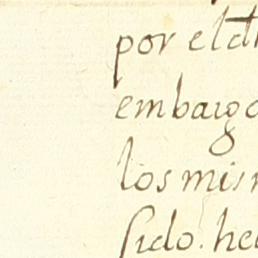 por el
embarg
los mis
sido. he